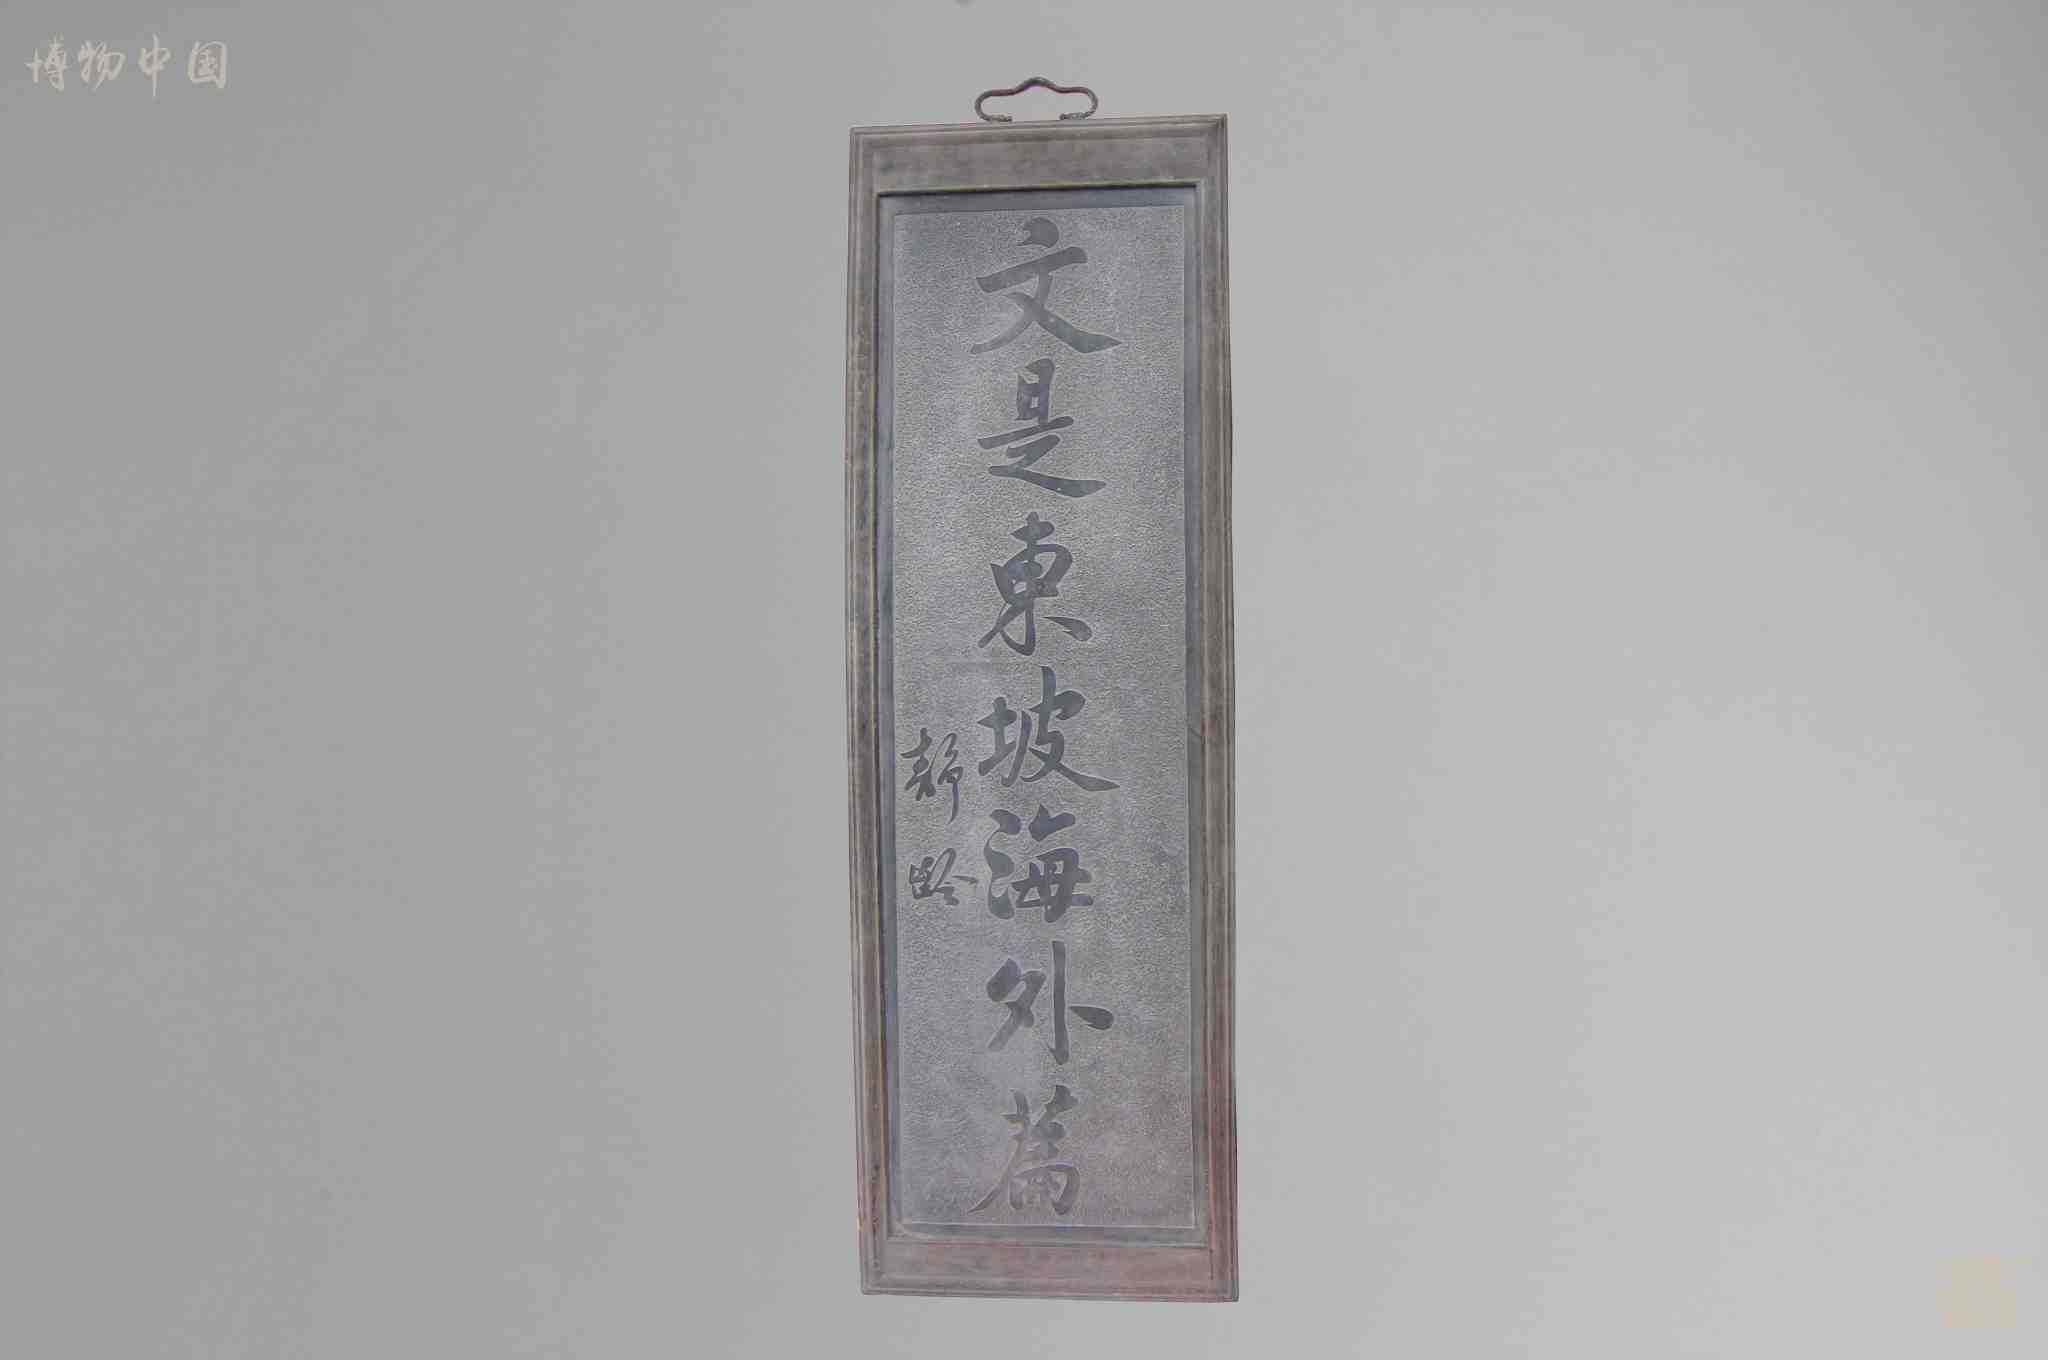 博物中国
文是東坡海外篇
靜齡